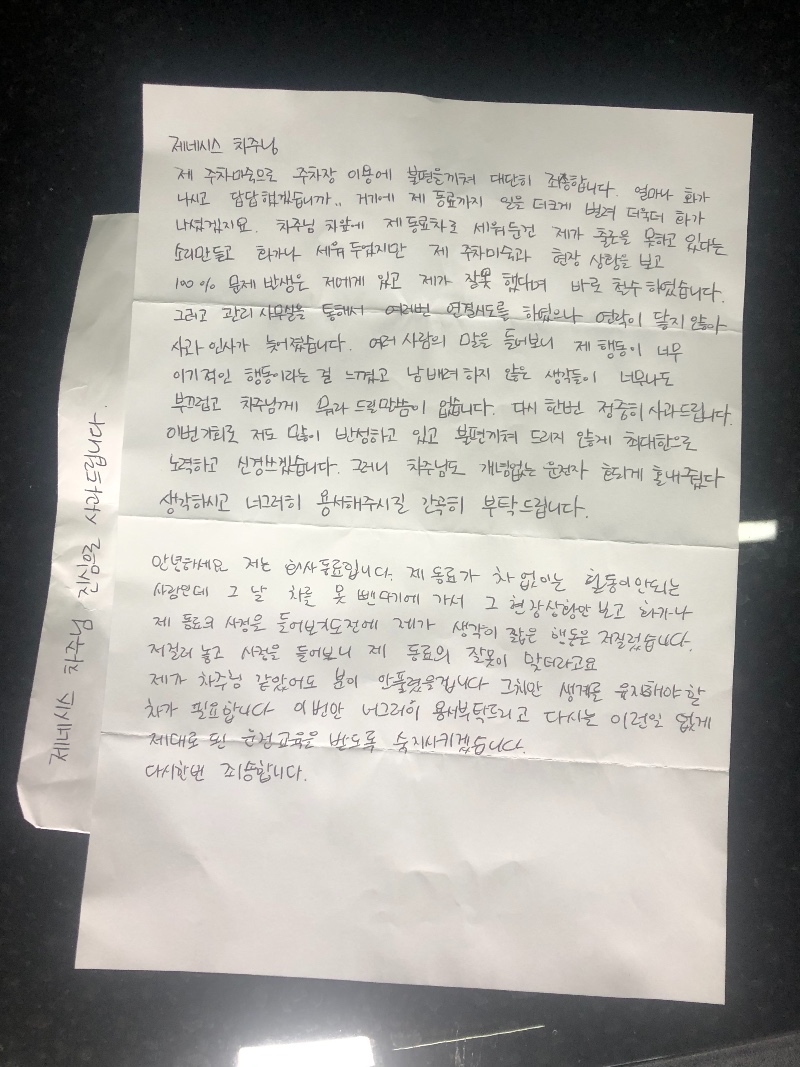 제네시스 차주님
제 주차미숙으로 주차장 이용에 불편을끼쳐 대단히 죄송합니다. 얼마나 화가
나시고 답답했겠습니까.. 거기에 제 동료까지 일을 더크게 벌려 더욱더 화가
나셨겠지요. 차주님 차앞에 제동료차로 세워둔건 제가 출근을 못하고 있다는
소리만듣고 화가나 세워 두었지만 제 주차미숙과 현장 상황을 보고
100% 문제 발생은 저에게 있고 제가 잘못 했다며 바로 철수 하였습니다.
그리고 관리 사무실을 통해서 여러번 연결시도를 하였으나 연락이 닿지 않아
사과 인사가 늦어졌습니다. 여러 사람의 말을 들어보니 제 행동이 너무
이기적인 행동이라는 걸 느꼈고 남 배려 하지 않은 생각들이 너무나도
부끄럽고 차주님께 뭐라 드릴말씀이 없습니다. 다시 한번 정중히 사과드립니다.
이번기회로 저도 많이 반성하고 있고 불편끼쳐 드리지 않게 최대한으로
노력하고 신경쓰겠습니다. 그러니 차주님도 개념없는 운전자 호되게 혼내줬다
생각하시고 너그러히 용서해주시길 간곡히 부탁드립니다.
안녕하세요 저는 회사동료입니다. 제 동료가 차 없이는 활동이안되는
사람인데 그 날 차를 못 뺀다기에 가서 그 현장상황만 보고 화가나
제 동료의 사정을 들어보기도전에 제가 생각이 짧은 행동은 저질렀습니다.
저질러 놓고 사정을 들어보니 제 동료의 잘못이 맞더라고요
제가 차주님 같았어도 분이 안풀렸을겁니다 그치만 생계를 유지해야 할
차가 필요합니다 이번만 너그러히 용서부탁드리고 다시는 이런일 없게
제대로 된 운전교육을 받도록 숙지시키겠습니다.
다시한번 죄송합니다.
제네시스 차주님 진심으로 사과드립니다.